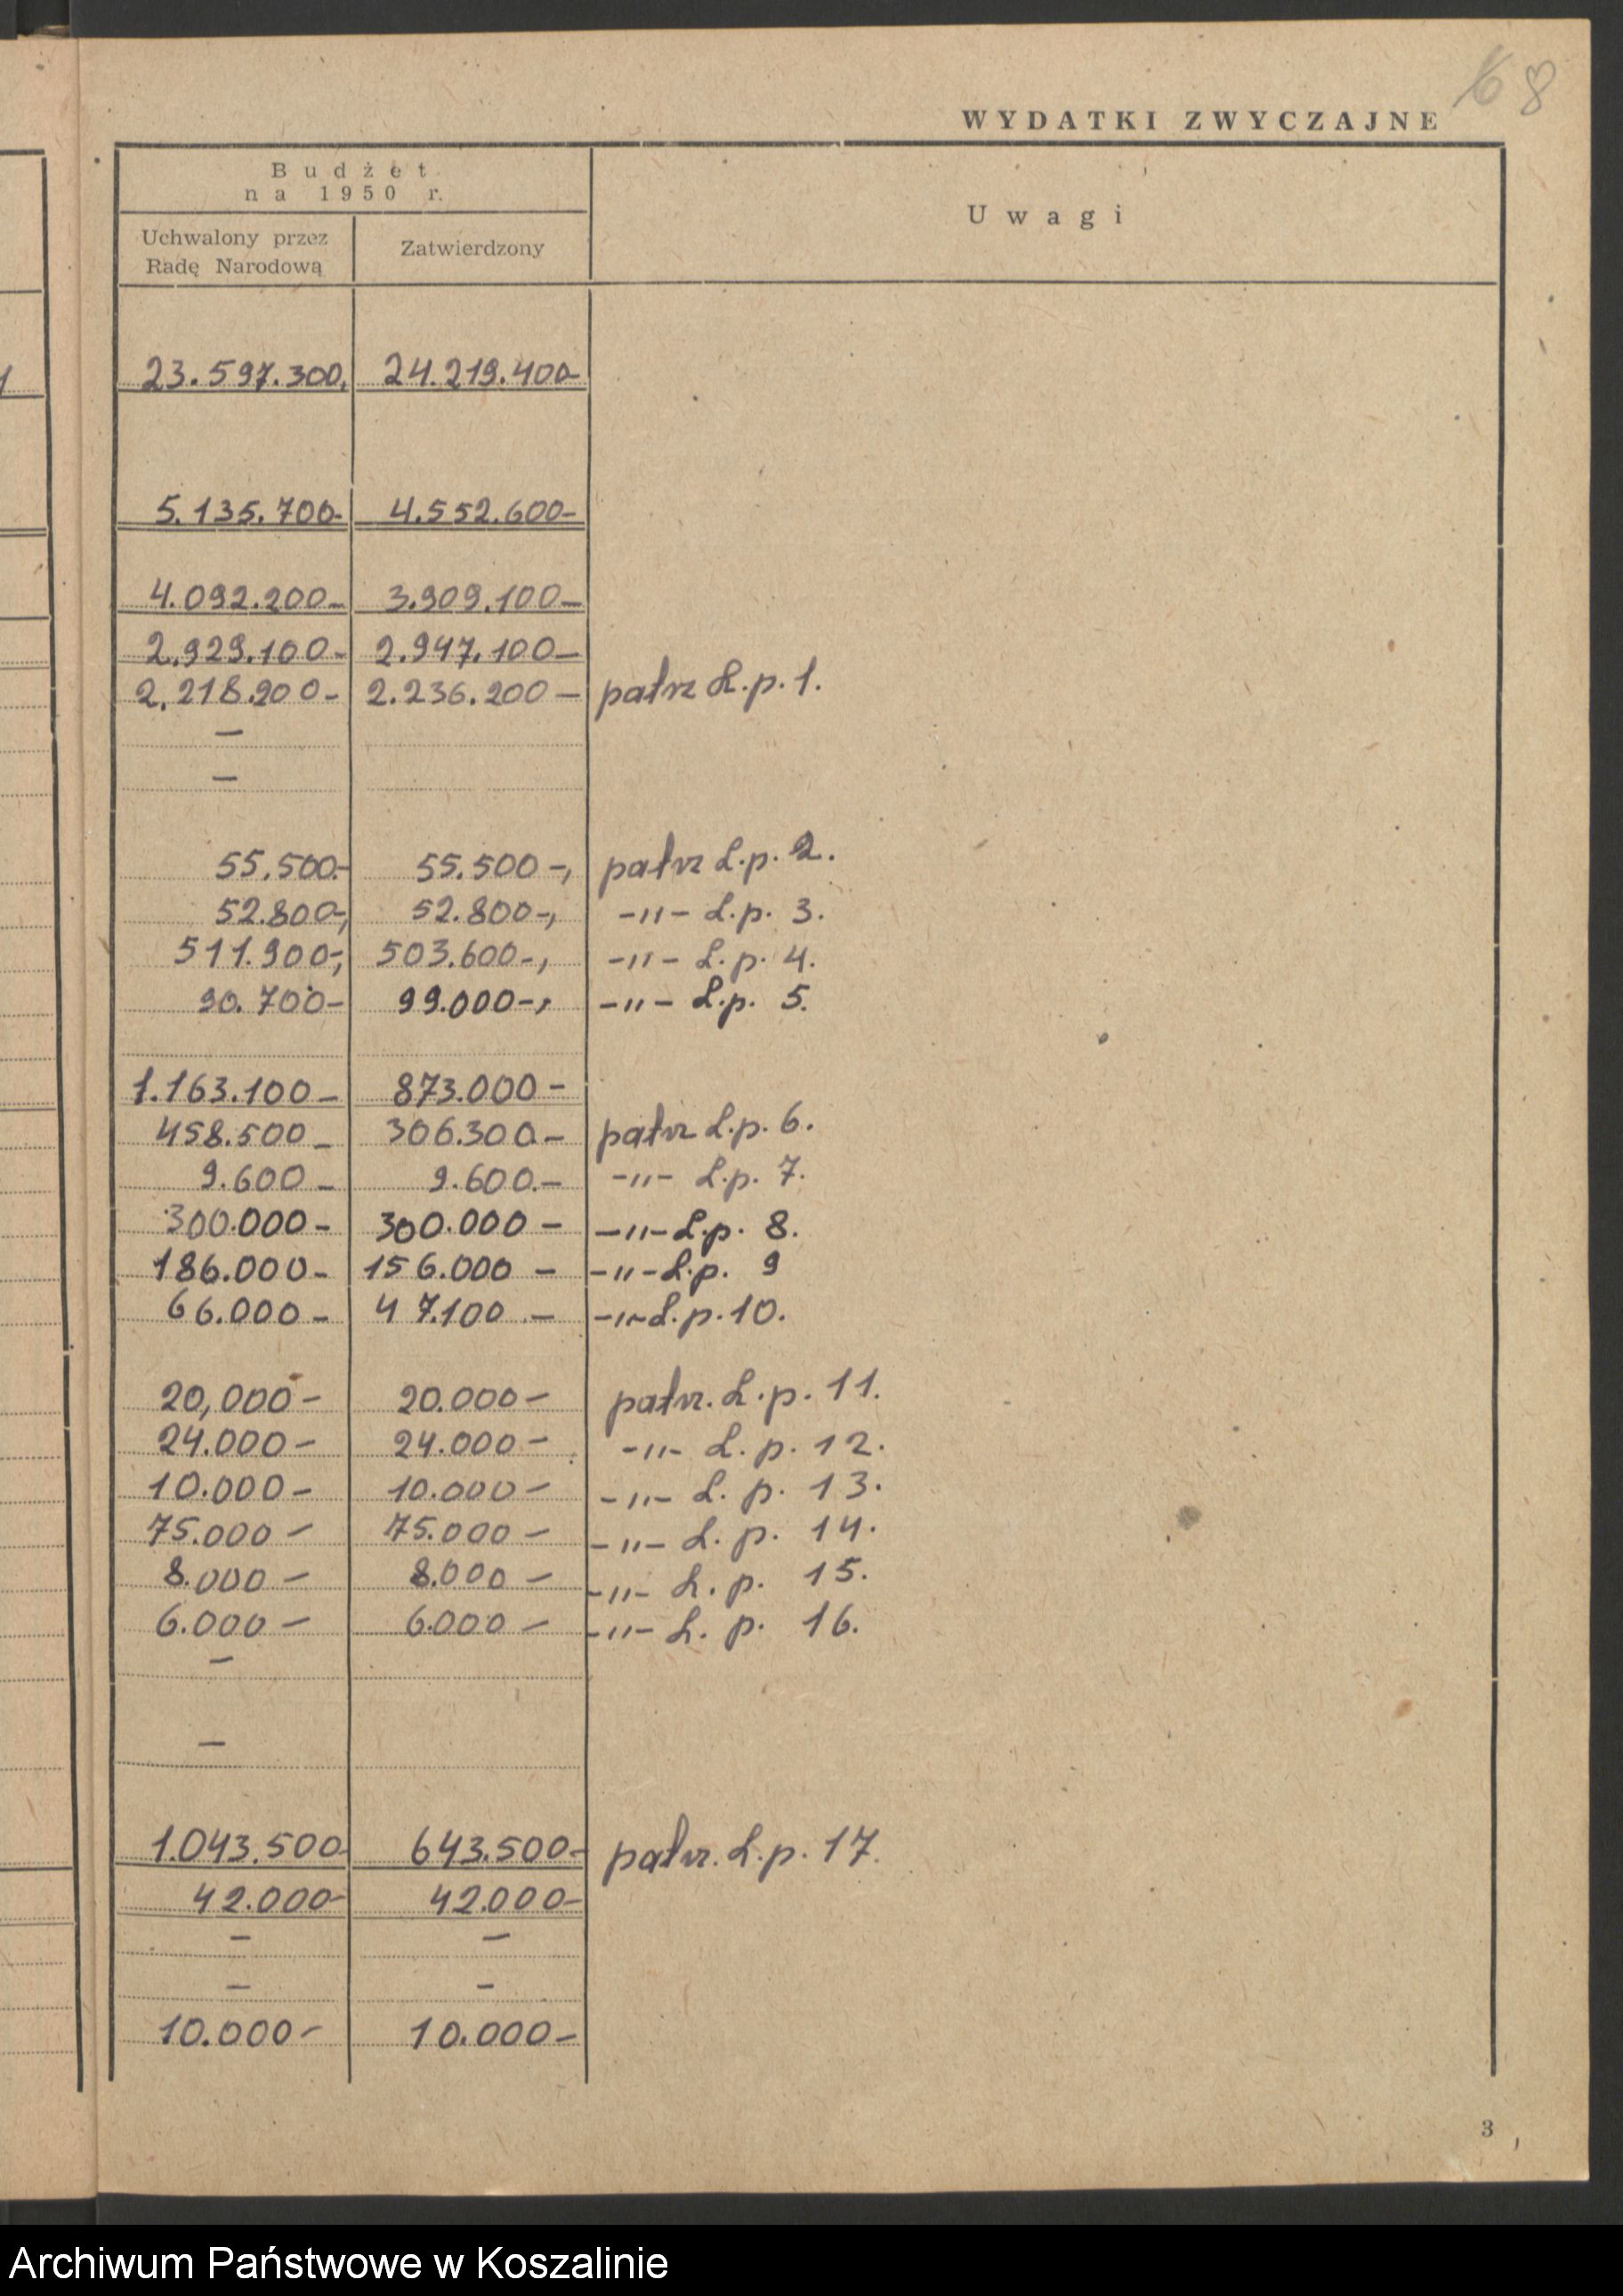 68
WYDATKI ZWYCZAJNE
Budżet
na 1950 r.
Uwagi
Uchwalony przez
Radę Narodową
Zatwierdzony
23.597.300, 24.219.400-
5.135.700- 4.552.600-
4.092.200- 3.909.100-
2.929.100- 2.947.100-
2.218.200- 2.236.200- patrz L.p. 1.
-
-
55.500.- 55.500-, patrz L.p. 2.
52.800-, 52.800-, -"- L.p. 3.
511.900-, 503.600-, -"- L.p. 4.
90.700- 99.000-, -"- L.p. 5.
1.163.100- 873.000-
458.500- 306.300- patrz L.p. 6.
9.600- 9.600.- -"- L.p. 7.
300.000- 300.000- -"- L.p. 8.
186.000- 156.000- -"- L.p. 9
66.000- 47.100- -"- L.p. 10.
20,000- 20.000- patrz. L.p. 11.
24.000- 24.000- -"- L.p. 12.
10.000- 10.000- -"- L.p. 13.
75.000- 75.000- -"- L.p. 14.
8.000- 8.000- -"- L.p. 15.
6.000- 6.000- -"- L.p. 16.
-
-
1.043.500- 643.500- patrz. L.p. 17.
42.000- 42.000-
- -
- -
10.000- 10.000-
3
Archiwum Państwowe w Koszalinie